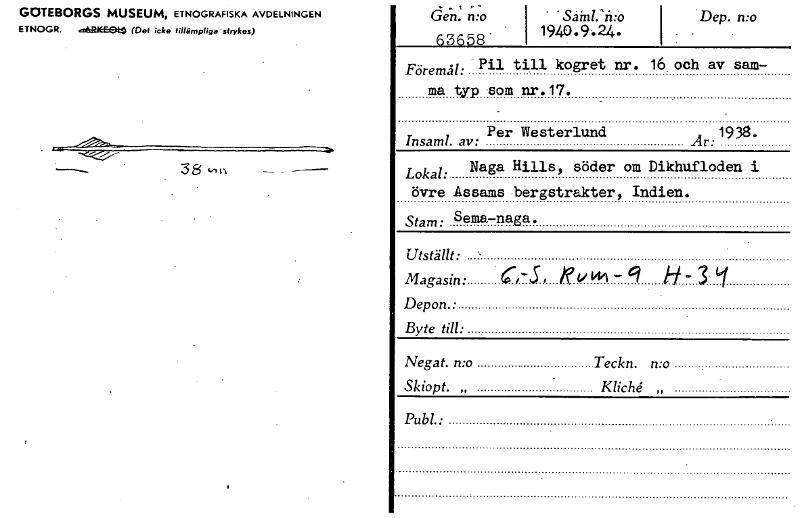 GÖTEBORGS MUSEUM, ETNOGRAFISKA AVDELNINGEN
ETNOGR. ARKEOL. (Det icke tillämpliga strykes)
38
Gen. n:o
63658
Saml. n:o
1940.9.24.
Dep. n:o
Föremål: Pil till kogret nr. 16 och av sam-
ma typ som nr.17.
Insaml. av: Per Westerlund År: 1938.
Lokal: Naga Hills, söder om Dikhufloden i
övre Assams bergstrakter, Indien.
Stam: Sema-naga.
Utställt:
Magasin: 6.-S. Rum-9 H-34
Depon.:
Byte till:
Negat. n:o Teckn. n:o
Skiopt. „ Kliché „
Publ.: